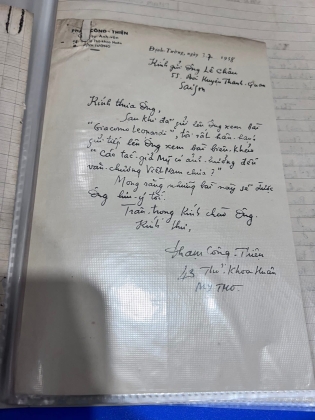 PHẠM CÔNG-THIỆN
Định-Tường, ngày 1958
Kính gửi Ông Lê Châu
Saigon
Kính thưa Ông,
Sau khi đã gửi lên Ông xem bài
"Giacomo Leonardi", tôi rất hân-hạnh
gửi tiếp lên Ông xem bài biên-khảo
"Các tác-giả Mỹ có ảnh-hưởng đến
văn-chương Việt Nam chưa?"
Mong rằng những bài này sẽ được
Ông lưu-ý tới.
Trân-trọng kính chào Ông.
Kính thư,
Phạm Công-Thiện
Thủ-Khoa Huân
MỸ THO